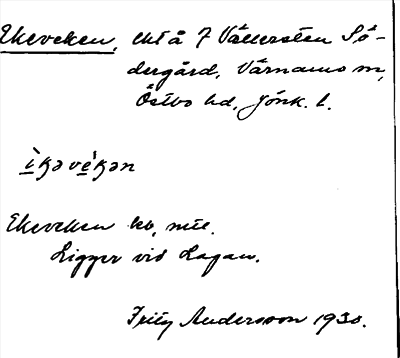 Ekeveken, ekt å 7 Vällersten Sö-
dergård, Värnamo sn,
Östbo hd, Jönk. l.
ìꞣǝvèꞣǝn
Ekeveken
Ligger vid Lagan.
Fritz Andersson 1930.